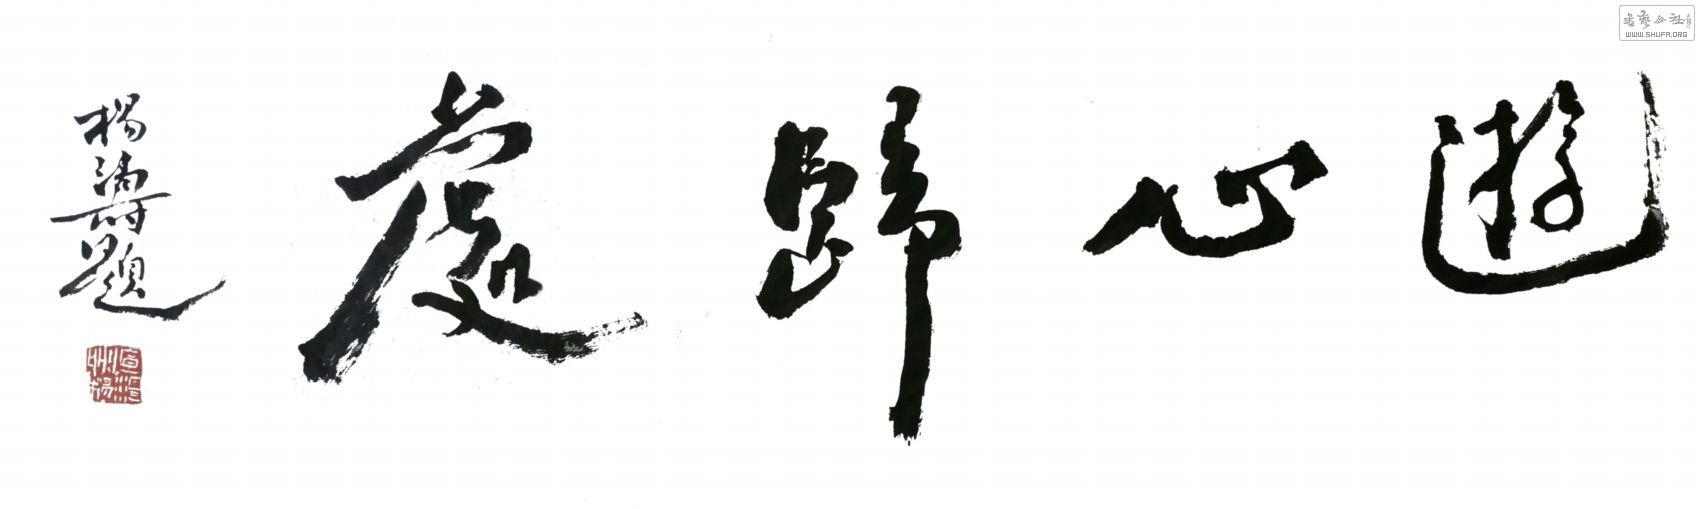 遊心歸處
楊濤題
書藝公社
WWW.SHUFA.ORG